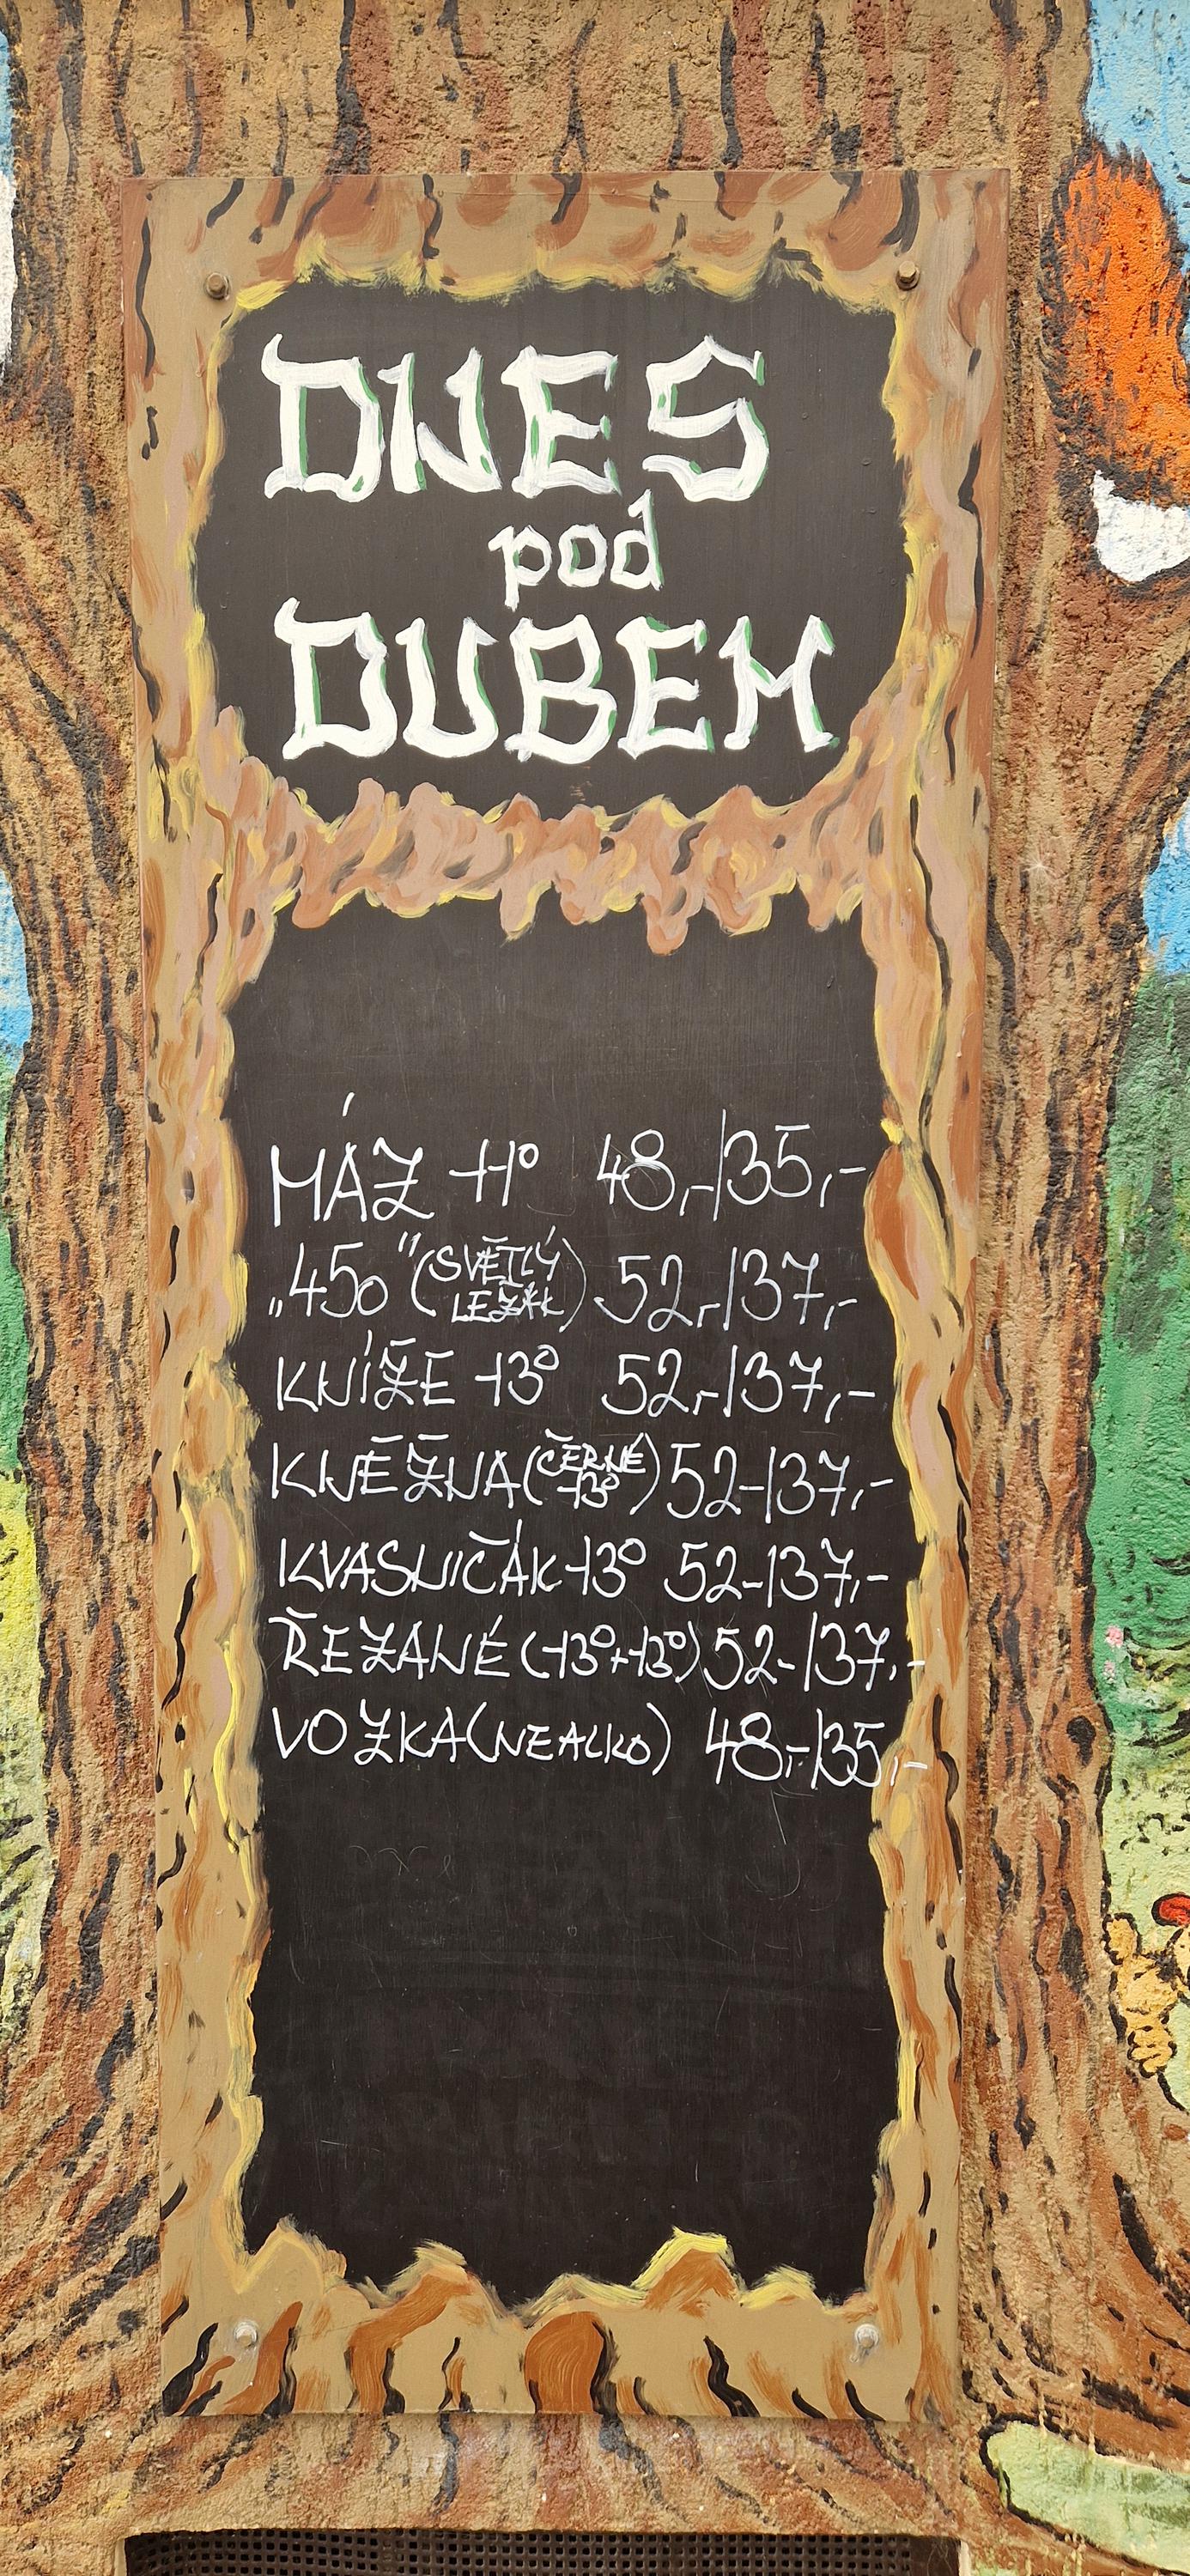 DNES
pod
DUBEM
MÁZ 11° 48,-/35,-
„450" (SVĚTLÝ LEŽÁK) 52,-/37,-
KNÍŽE 13° 52,-/37,-
KNĚŽNA (ČERNÉ 13°) 52-/37,-
KVASNIČÁK 13° 52-/37,-
ŘEZANÉ (13°+13°) 52-/37,-
VOZKA (NEALKO) 48,-/35,-